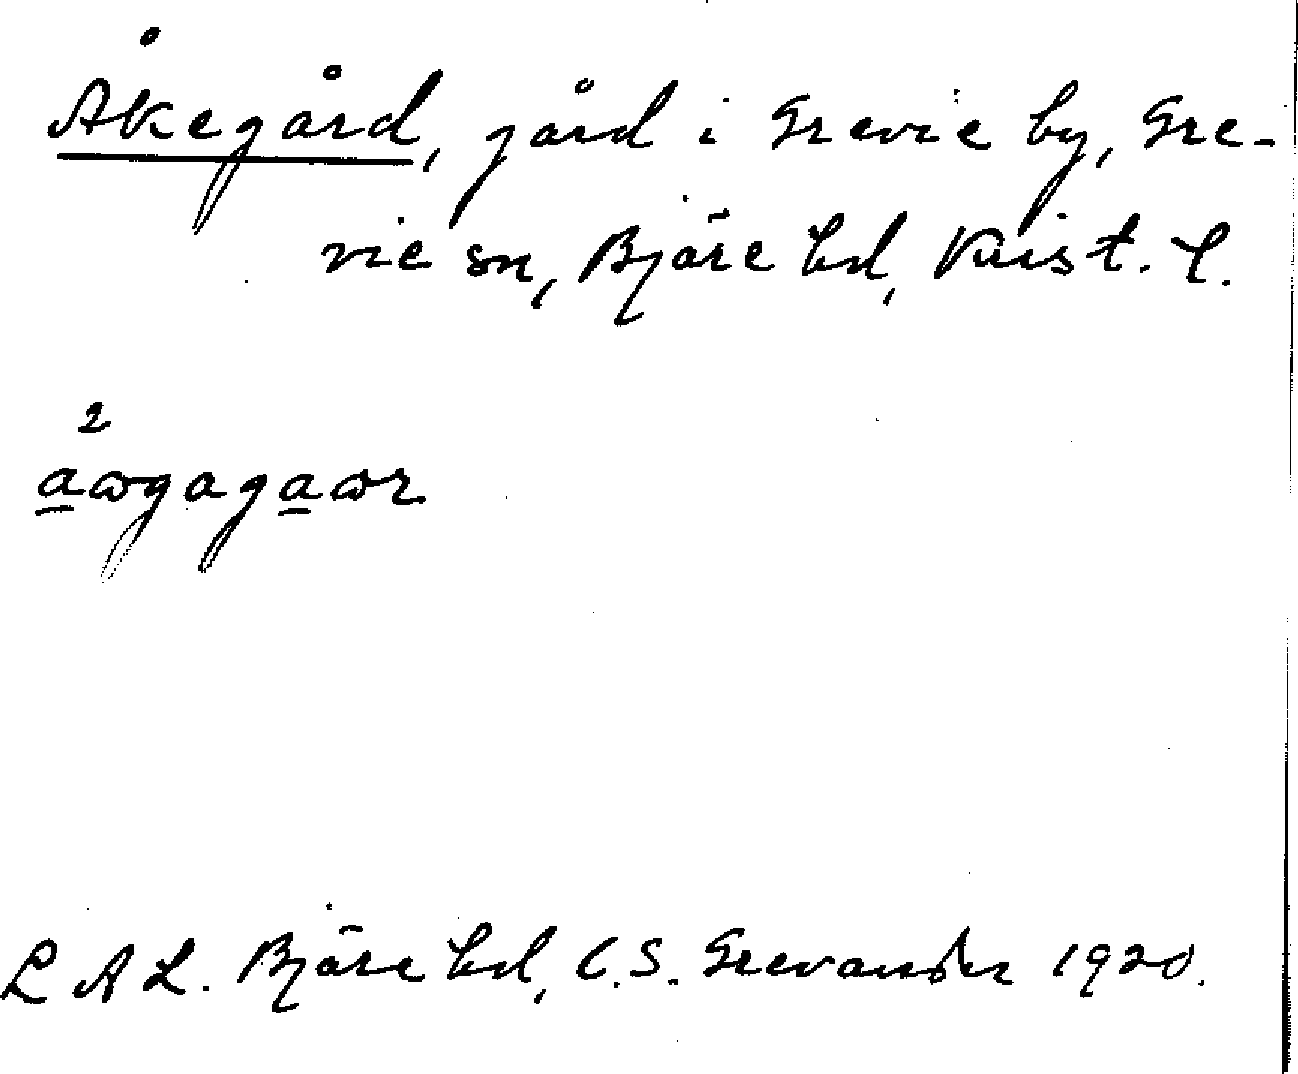 Åkegård, gård i Grevie by, Gre-
vie sn, Bjäre hd, Krist. l.
2
a̲ωgaga̲ωr
L A L. Bjäre hd, C. S. Grevander 1920.